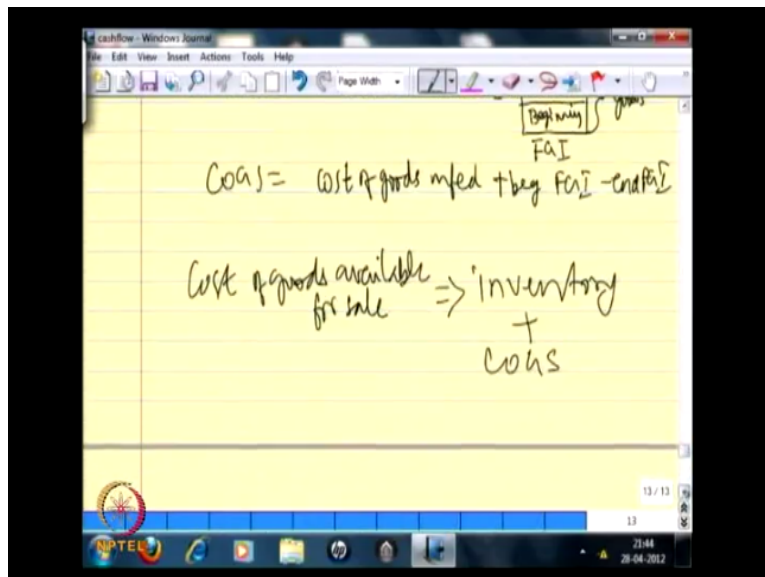 cashflow - Windows Journal
File Edit View Insert Actions Tools Help
Page Width
Beginning
FGI
COGS = cost of goods mfed + beg FGI - end FGI
Cost of goods available ⇒ inventory
for sale
+
COGS
13 / 13
13
NPTEL
21:44
28-04-2012